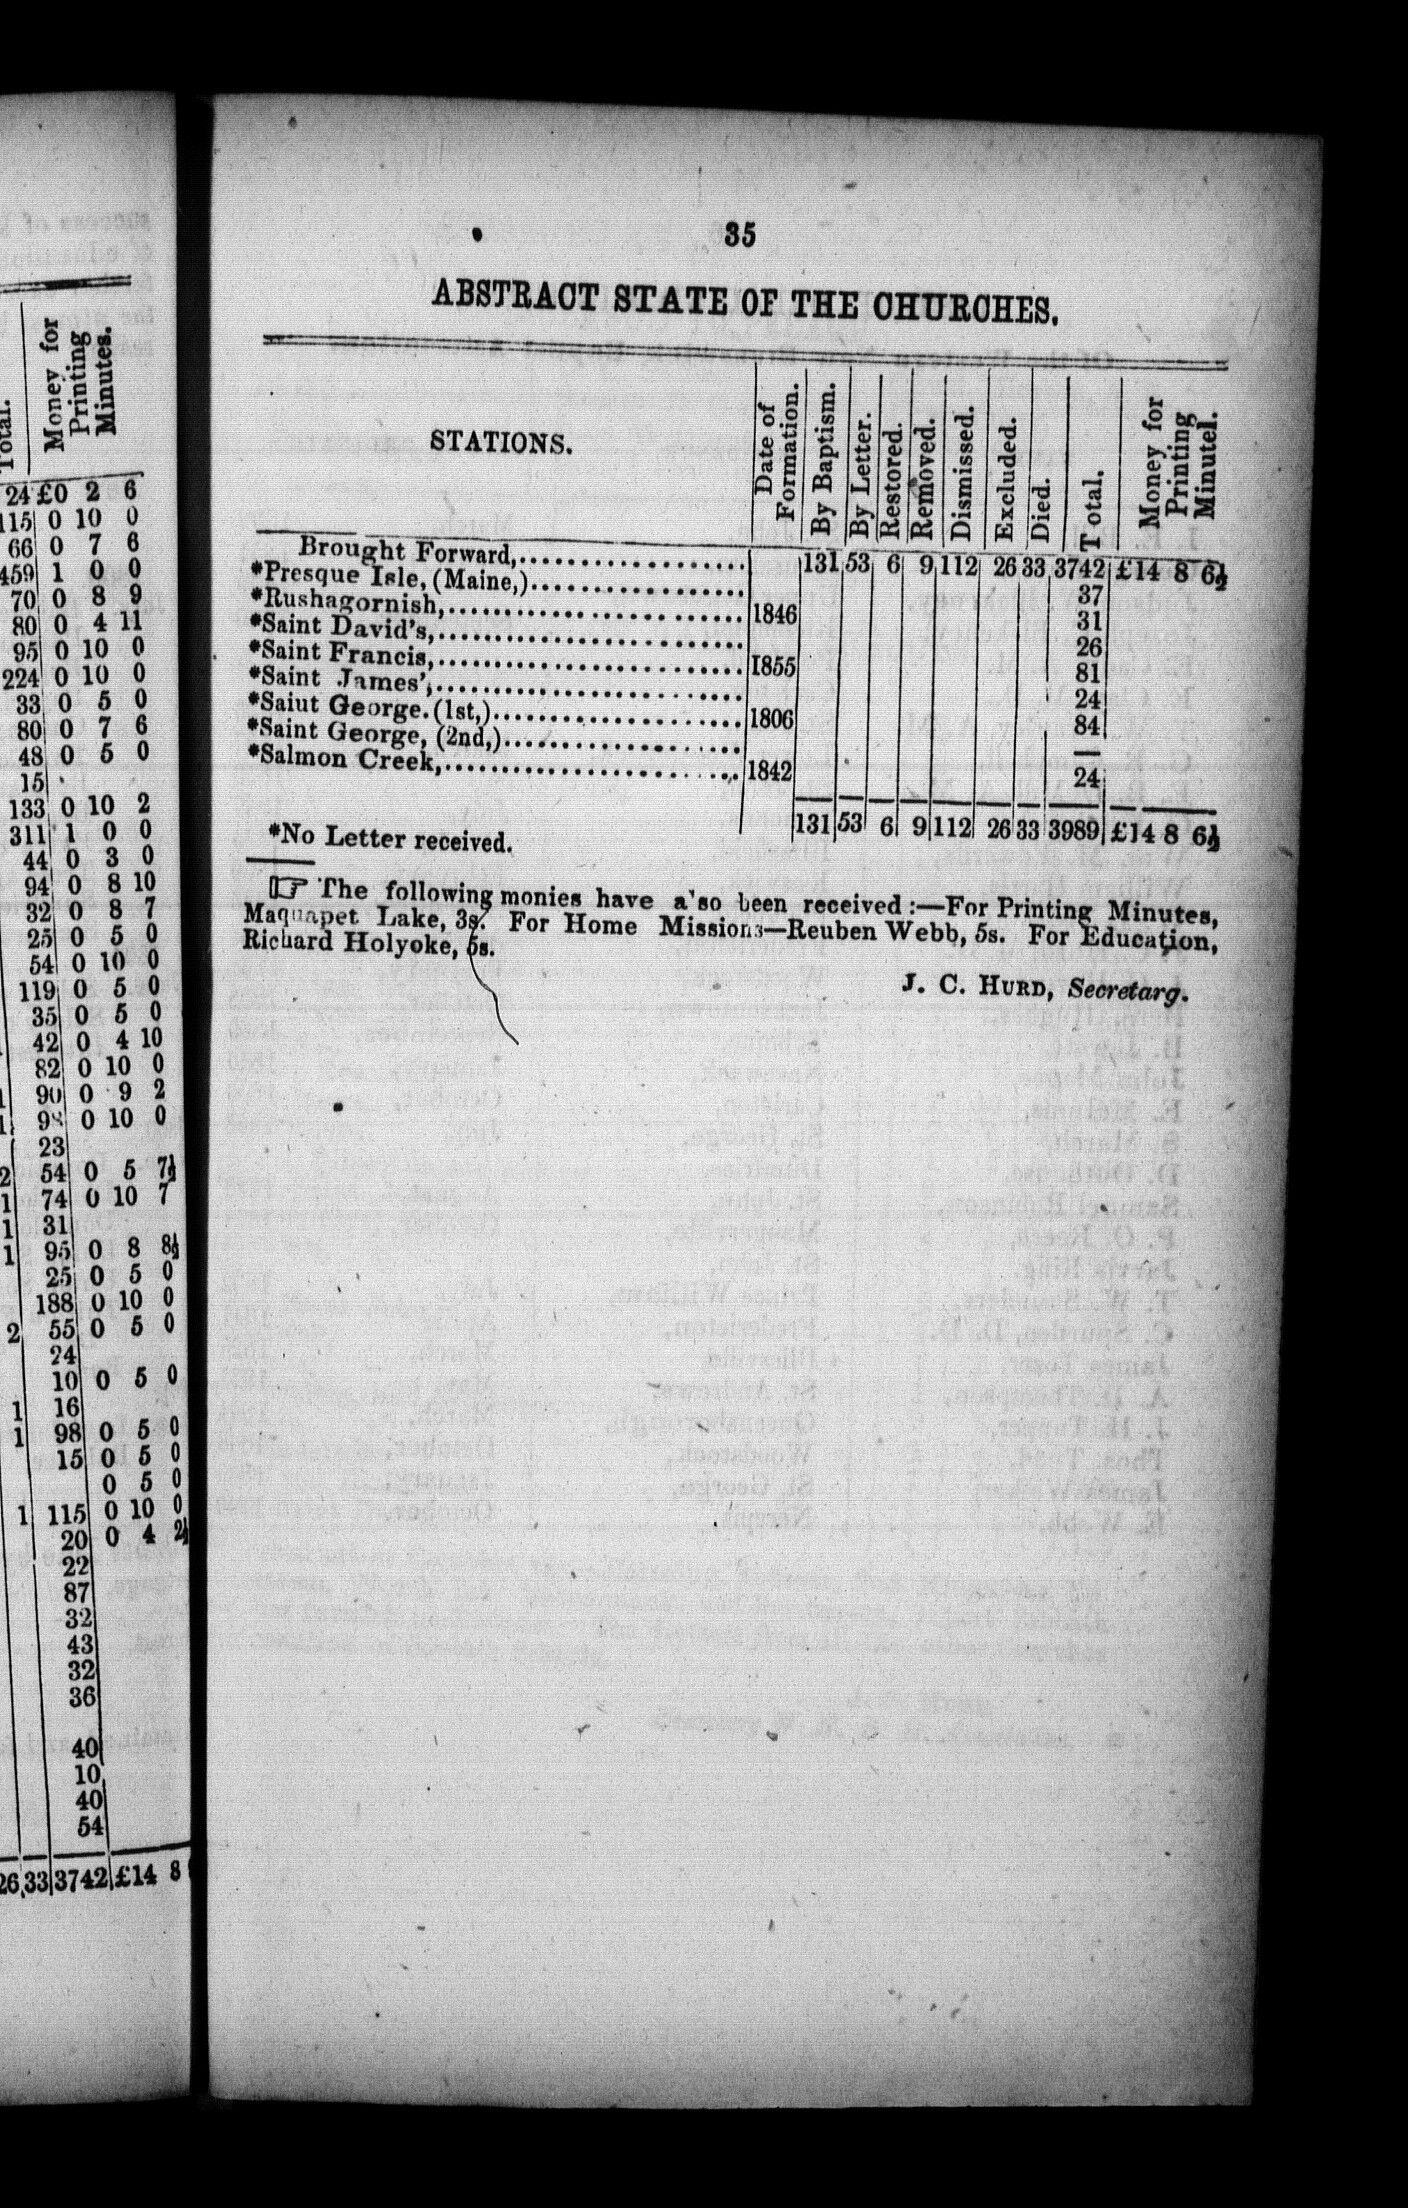 Total.
Money for
Printing
Minutes.
24 £0 2 6
115 0 10 0
66 0 7 6
459 1 0 0
70 0 8 9
80 0 4 11
95 0 10 0
224 0 10 0
33 0 5 0
80 0 7 6
48 0 5 0
15
133 0 10 2
311 1 0 0
44 0 3 0
94 0 8 10
32 0 8 7
25 0 5 0
54 0 10 0
119 0 5 0
35 0 5 0
42 0 4 10
82 0 10 0
90 0 9 2
98 0 10 0
23
2 54 0 5 7½
1 74 0 10 7
1 31
1 95 0 8 8½
25 0 5 0
188 0 10 0
2 55 0 5 0
24
10 0 5 0
1 16
1 98 0 5 0
15 0 5 0
0 5 0
1 115 0 10 0
20 0 4 2½
22
87
32
43
32
36
40
10
40
54
26 33 3742 £14 8
35
ABSTRACT STATE OF THE CHURCHES.
STATIONS. Date of Formation. By Baptism. By Letter. Restored. Removed. Dismissed. Excluded. Died. Total. Money for Printing Minutel.
Brought Forward,.................. 131 53 6 9 112 26 33 3742 £14 8 6½
*Presque Isle, (Maine,).................. 37
*Rushagornish,.................. 1846 31
*Saint David's,.................. 26
*Saint Francis,.................. 1855 81
*Saint James',.................. 24
*Saiut George.(1st,).................. 1806 84
*Saint George, (2nd,).................. —
*Salmon Creek,.................. 1842 24
131 53 6 9 112 26 33 3989 £14 8 6½
*No Letter received.
☞ The following monies have a'so been received:—For Printing Minutes,
Maquapet Lake, 3s. For Home Missions—Reuben Webb, 5s. For Education,
Richard Holyoke, 5s.
J. C. HURD, Secretarg.